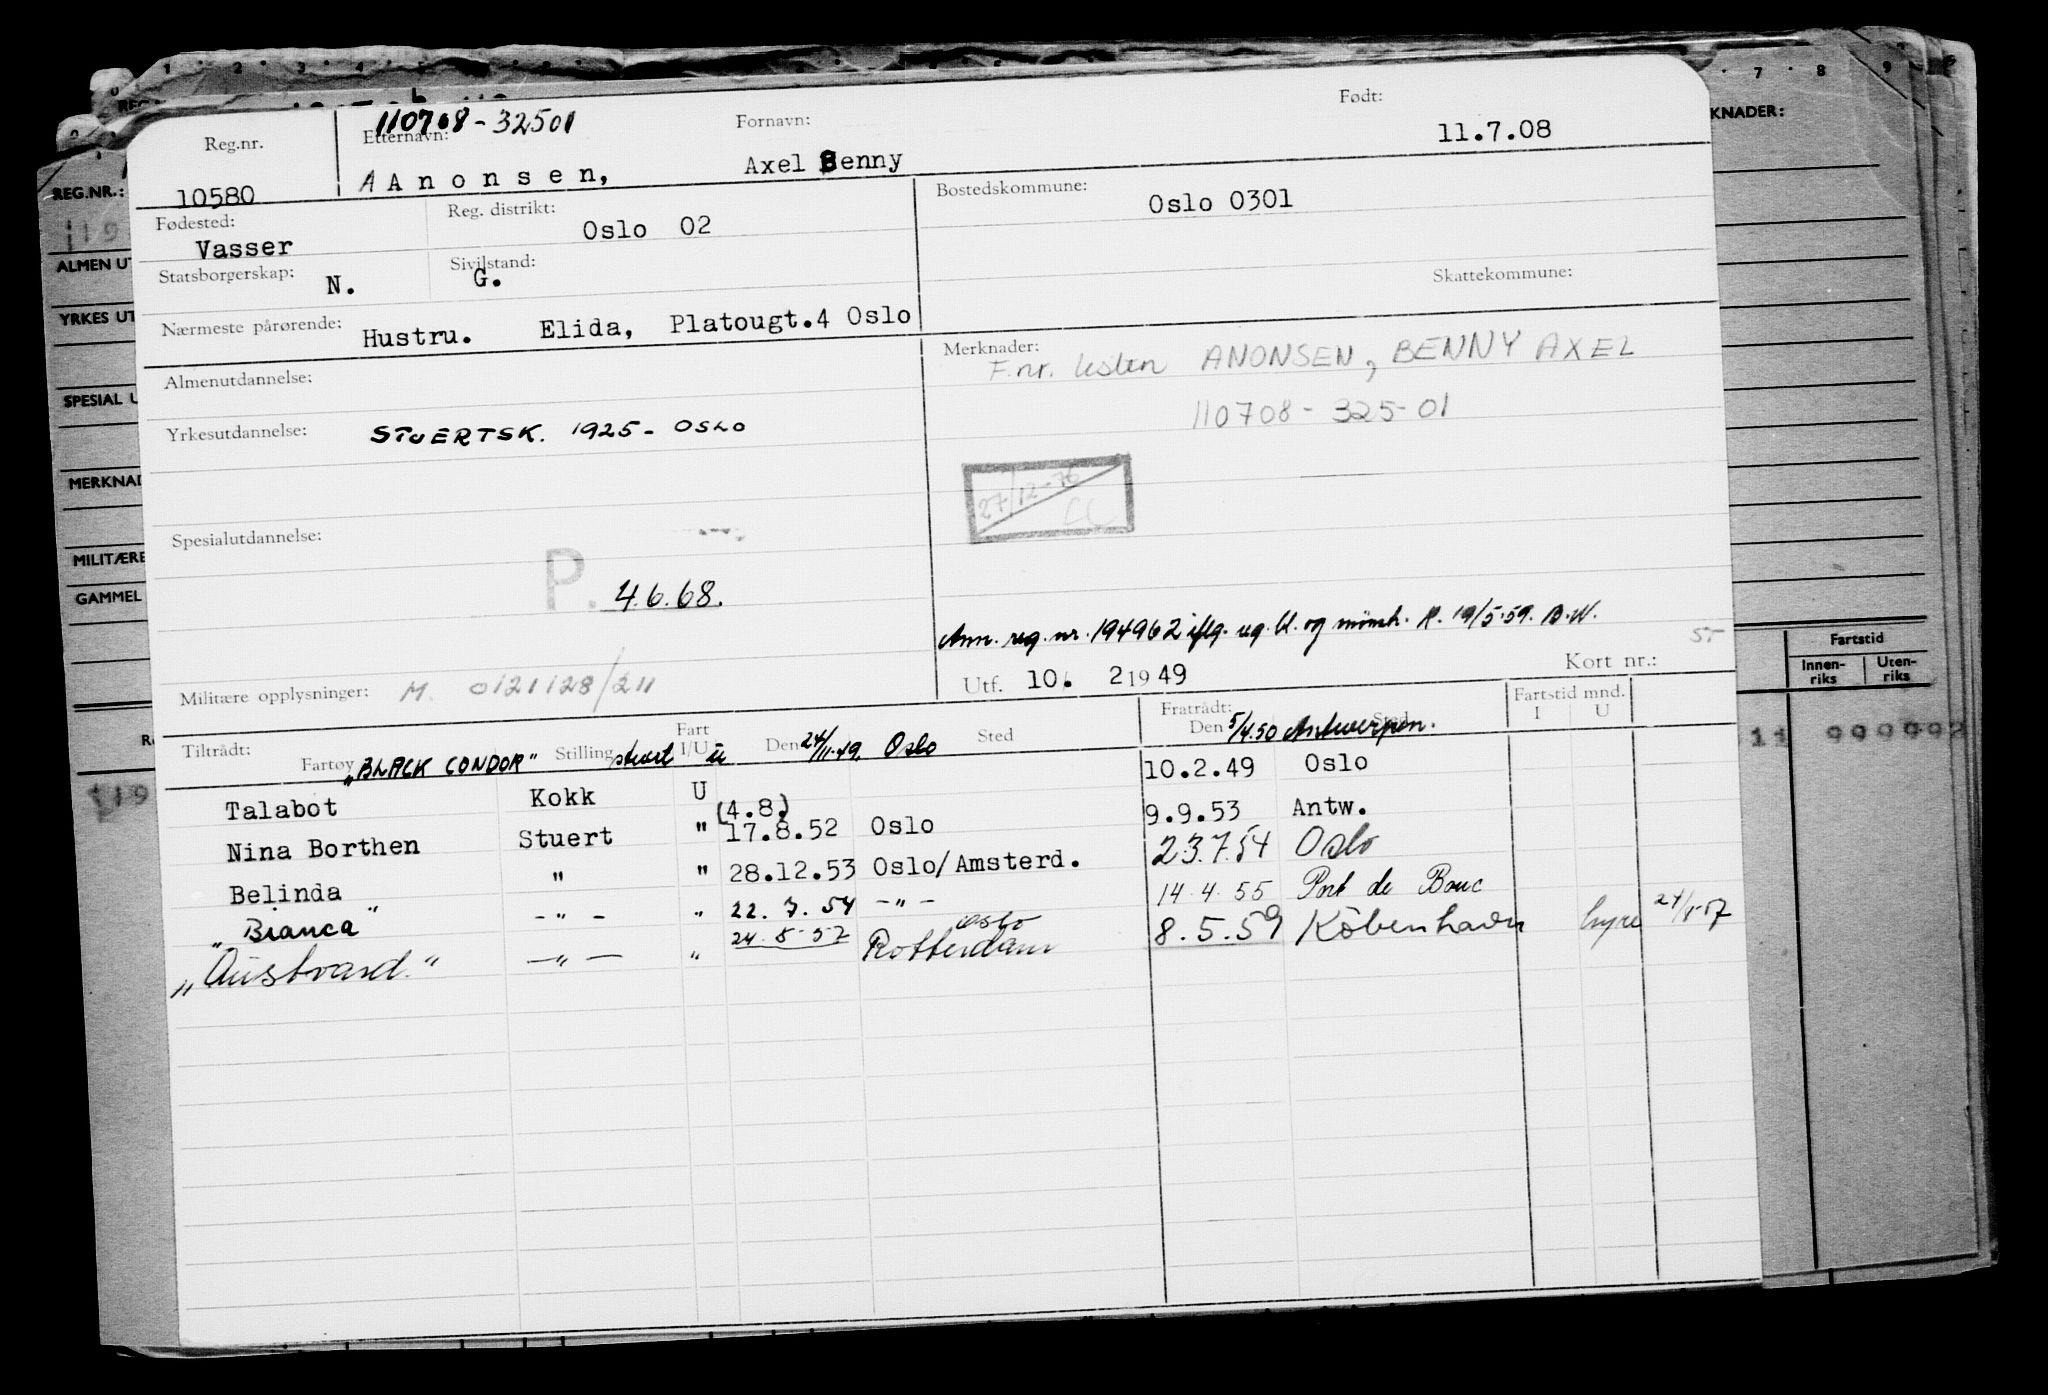 110708-32501
Reg.nr. Etternavn: Fornavn: Født:
10580 AAnonsen, Axel Benny 11.7.08
Fødested: Reg. distrikt: Bostedskommune:
Vasser Oslo 02 Oslo 0301
Statsborgerskap: N. Sivilstand: G. Skattekommune:
Nærmeste pårørende: Hustru. Elida, Platougt.4 Oslo
Almenutdannelse:
Merknader:
F.nr. listen ANONSEN, BENNY AXEL
110708-325-01
Yrkesutdannelse: STUERTSK. 1925- OSLO
27/12-76
CC
Spesialutdannelse:
P. 4.6.68.
Ann. reg. nr. 194962 iflg. og mönstr. R. 19/5.59. B.N.
Militære opplysninger: M. 0121128/211
Utf. 10. 2 1949 Kort nr.:
Tiltrådt: Fartøy Stilling Fart I/U Den Sted Fratrådt: Den Sted Fartstid mnd. I U
"BLACK CONDOR" stuert u 24/11.49. Oslo 5/4.50 Antwerpen.
Talabot Kokk U 10.2.49 Oslo
(4.8.)
Nina Borthen Stuert " 17.8.52 Oslo 9.9.53 Antw.
Belinda " " 28.12.53 Oslo/Amsterd. 23.7.54 Oslo
"Bianca" -"- " 22.7.54 -"- 14.4.55 Port de Bouc
"Austvard." -"- " 24.5.57 Oslo Rotterdam 8.5.59 Köbenhavn hyre
REG.NR.:
119
ALMEN UT
YRKES UT
SPESIAL U
MERKNAD
MILITÆRE
GAMMEL
119
KNADER:
7 8 9
Fartstid
Innen-riks Uten-riks
11 999992